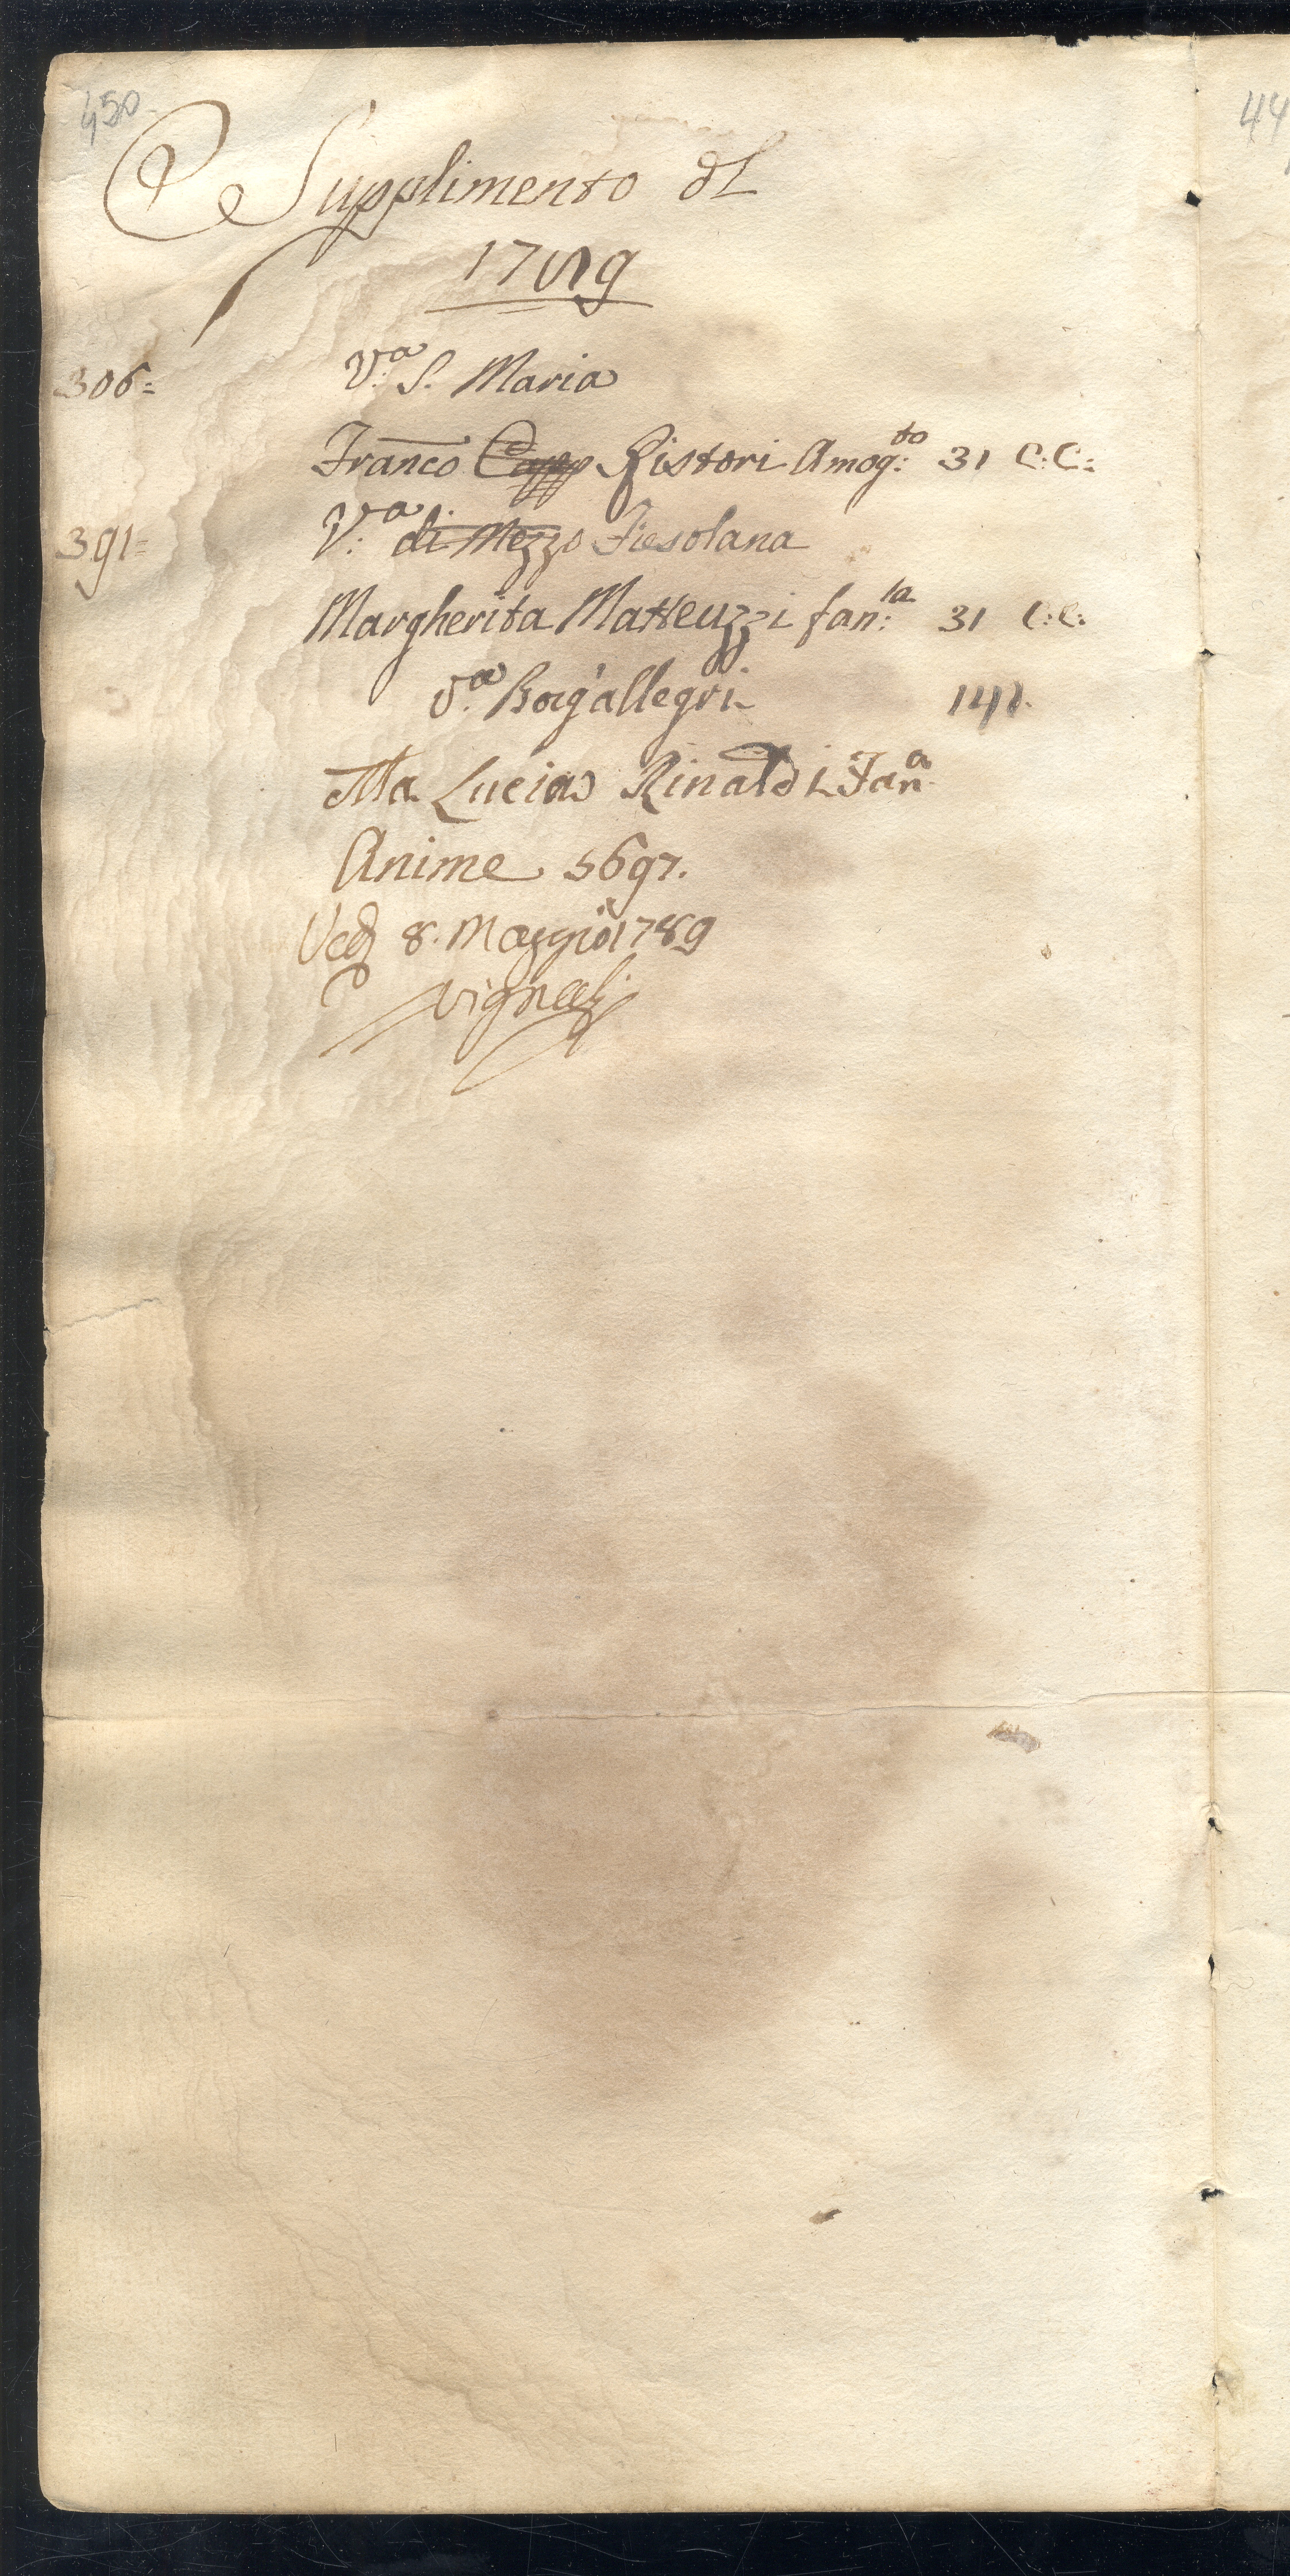 450
Supplimento dl
1789
306= V.ª S. Maria
Franco Ristori Amog:to 31 C:C:
391= V:ª di Mezzo Fiesolana
Margherita Matteuzzi fan:la 31 C:C:
V.ª Borg'allegri 141.
Ma Lucia Rinaldi Fan.ª
Anime 5697.
8. Maggio 1789
Vignali
44